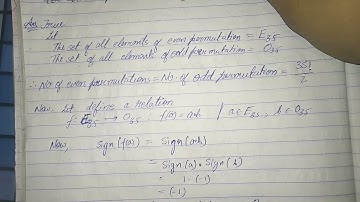 Ans True
Let
The set of all elements of even permutation = E35
The set of all elements of odd permutation = O35
∴ No of even permutations = No. of odd permutation = 35!/2
Now, Let define a relation
f: E35 → O35 : f(a) = a·b | a ∈ E35, b ∈ O35
Now,
Sign(f(a)) = Sign(a·b)
= Sign(a) · Sign(b)
= 1 · (-1)
= (-1)